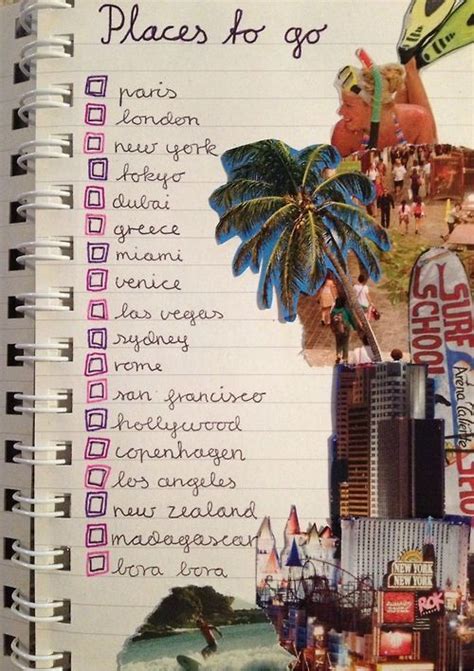 Places to go
paris
london
new york
tokyo
dubai
greece
miami
venice
las vegas
sydney
rome
san francisco
hollywood
copenhagen
los angeles
new zealand
madagascar
bora bora
SURF
SCHOOL
Arena Caliente
NEW YORK
NEW YORK
ROK